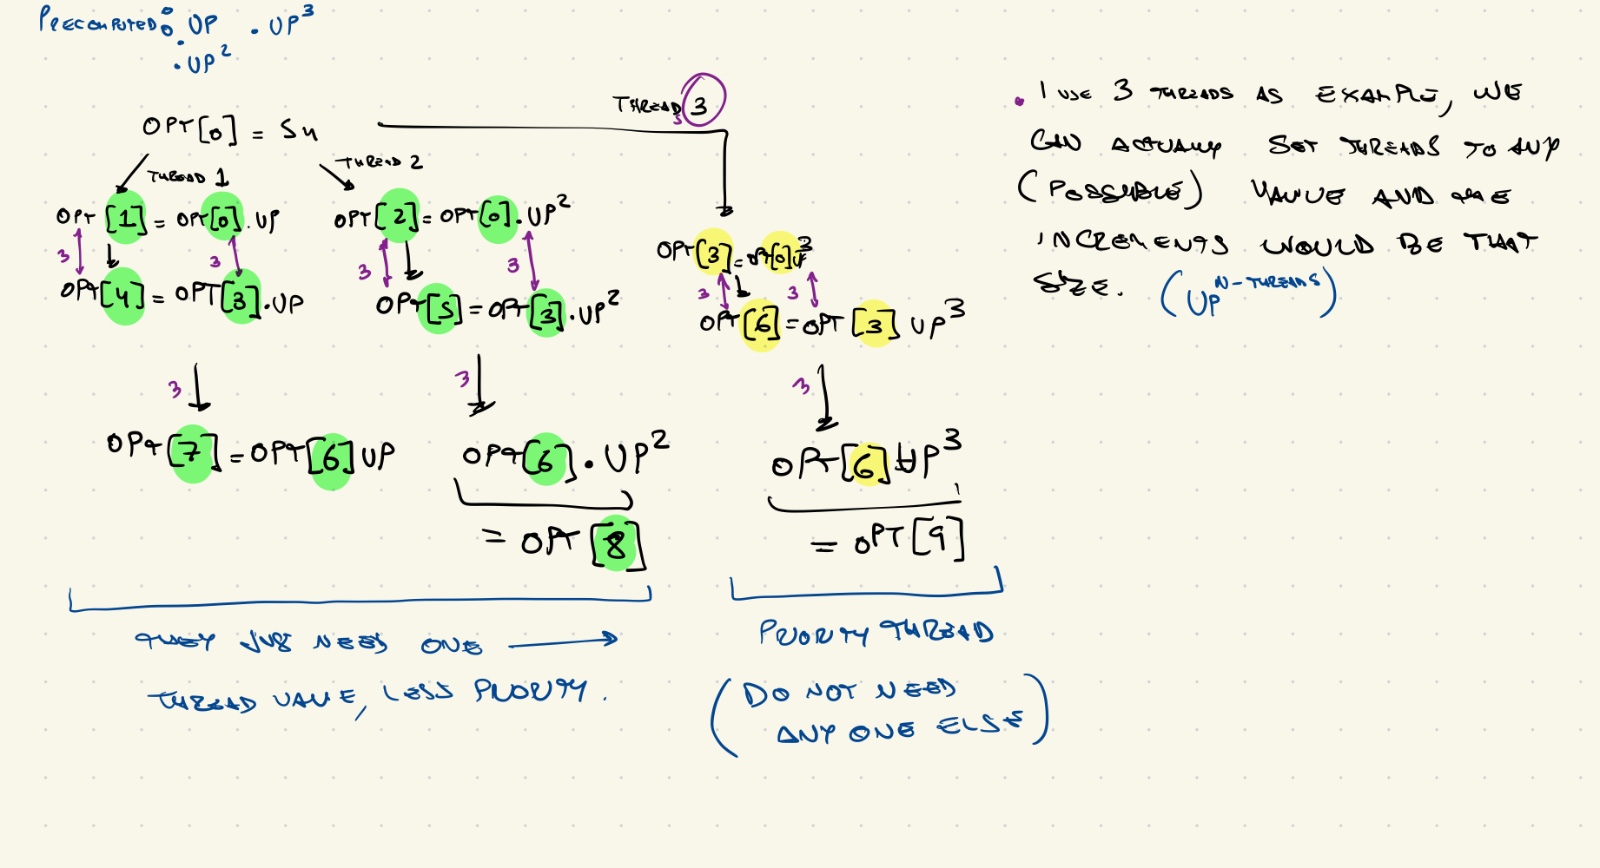 PRECOMPUTED: . UP . UP³
. UP²
THREAD 3
OPT[0] = Sn
THREAD 1
THREAD 2
OPT[1] = OPT[0].UP
OPT[2] = OPT[0].UP²
OPT[3] = OPT[0]UP³
3 3
3 3
3 3
OPT[4] = OPT[3].UP
OPT[5] = OPT[3].UP²
OPT[6] = OPT[3] UP³
3
3
3
OPT[7] = OPT[6] UP
OPT[6] . UP²
OPT[6] UP³
= OPT[8]
= OPT[9]
THEY JUS NEED ONE
THREAD VALUE, LESS PRIORITY.
PRIORITY THREAD
(DO NOT NEED
ANY ONE ELSE)
. I USE 3 THREADS AS EXAMPLE, WE
CAN ACTUALLY SET THREADS TO ANY
(POSSIBLE) VALUE AND THE
INCREMENTS WOULD BE THAT
SIZE. (UP^N-THREADS)